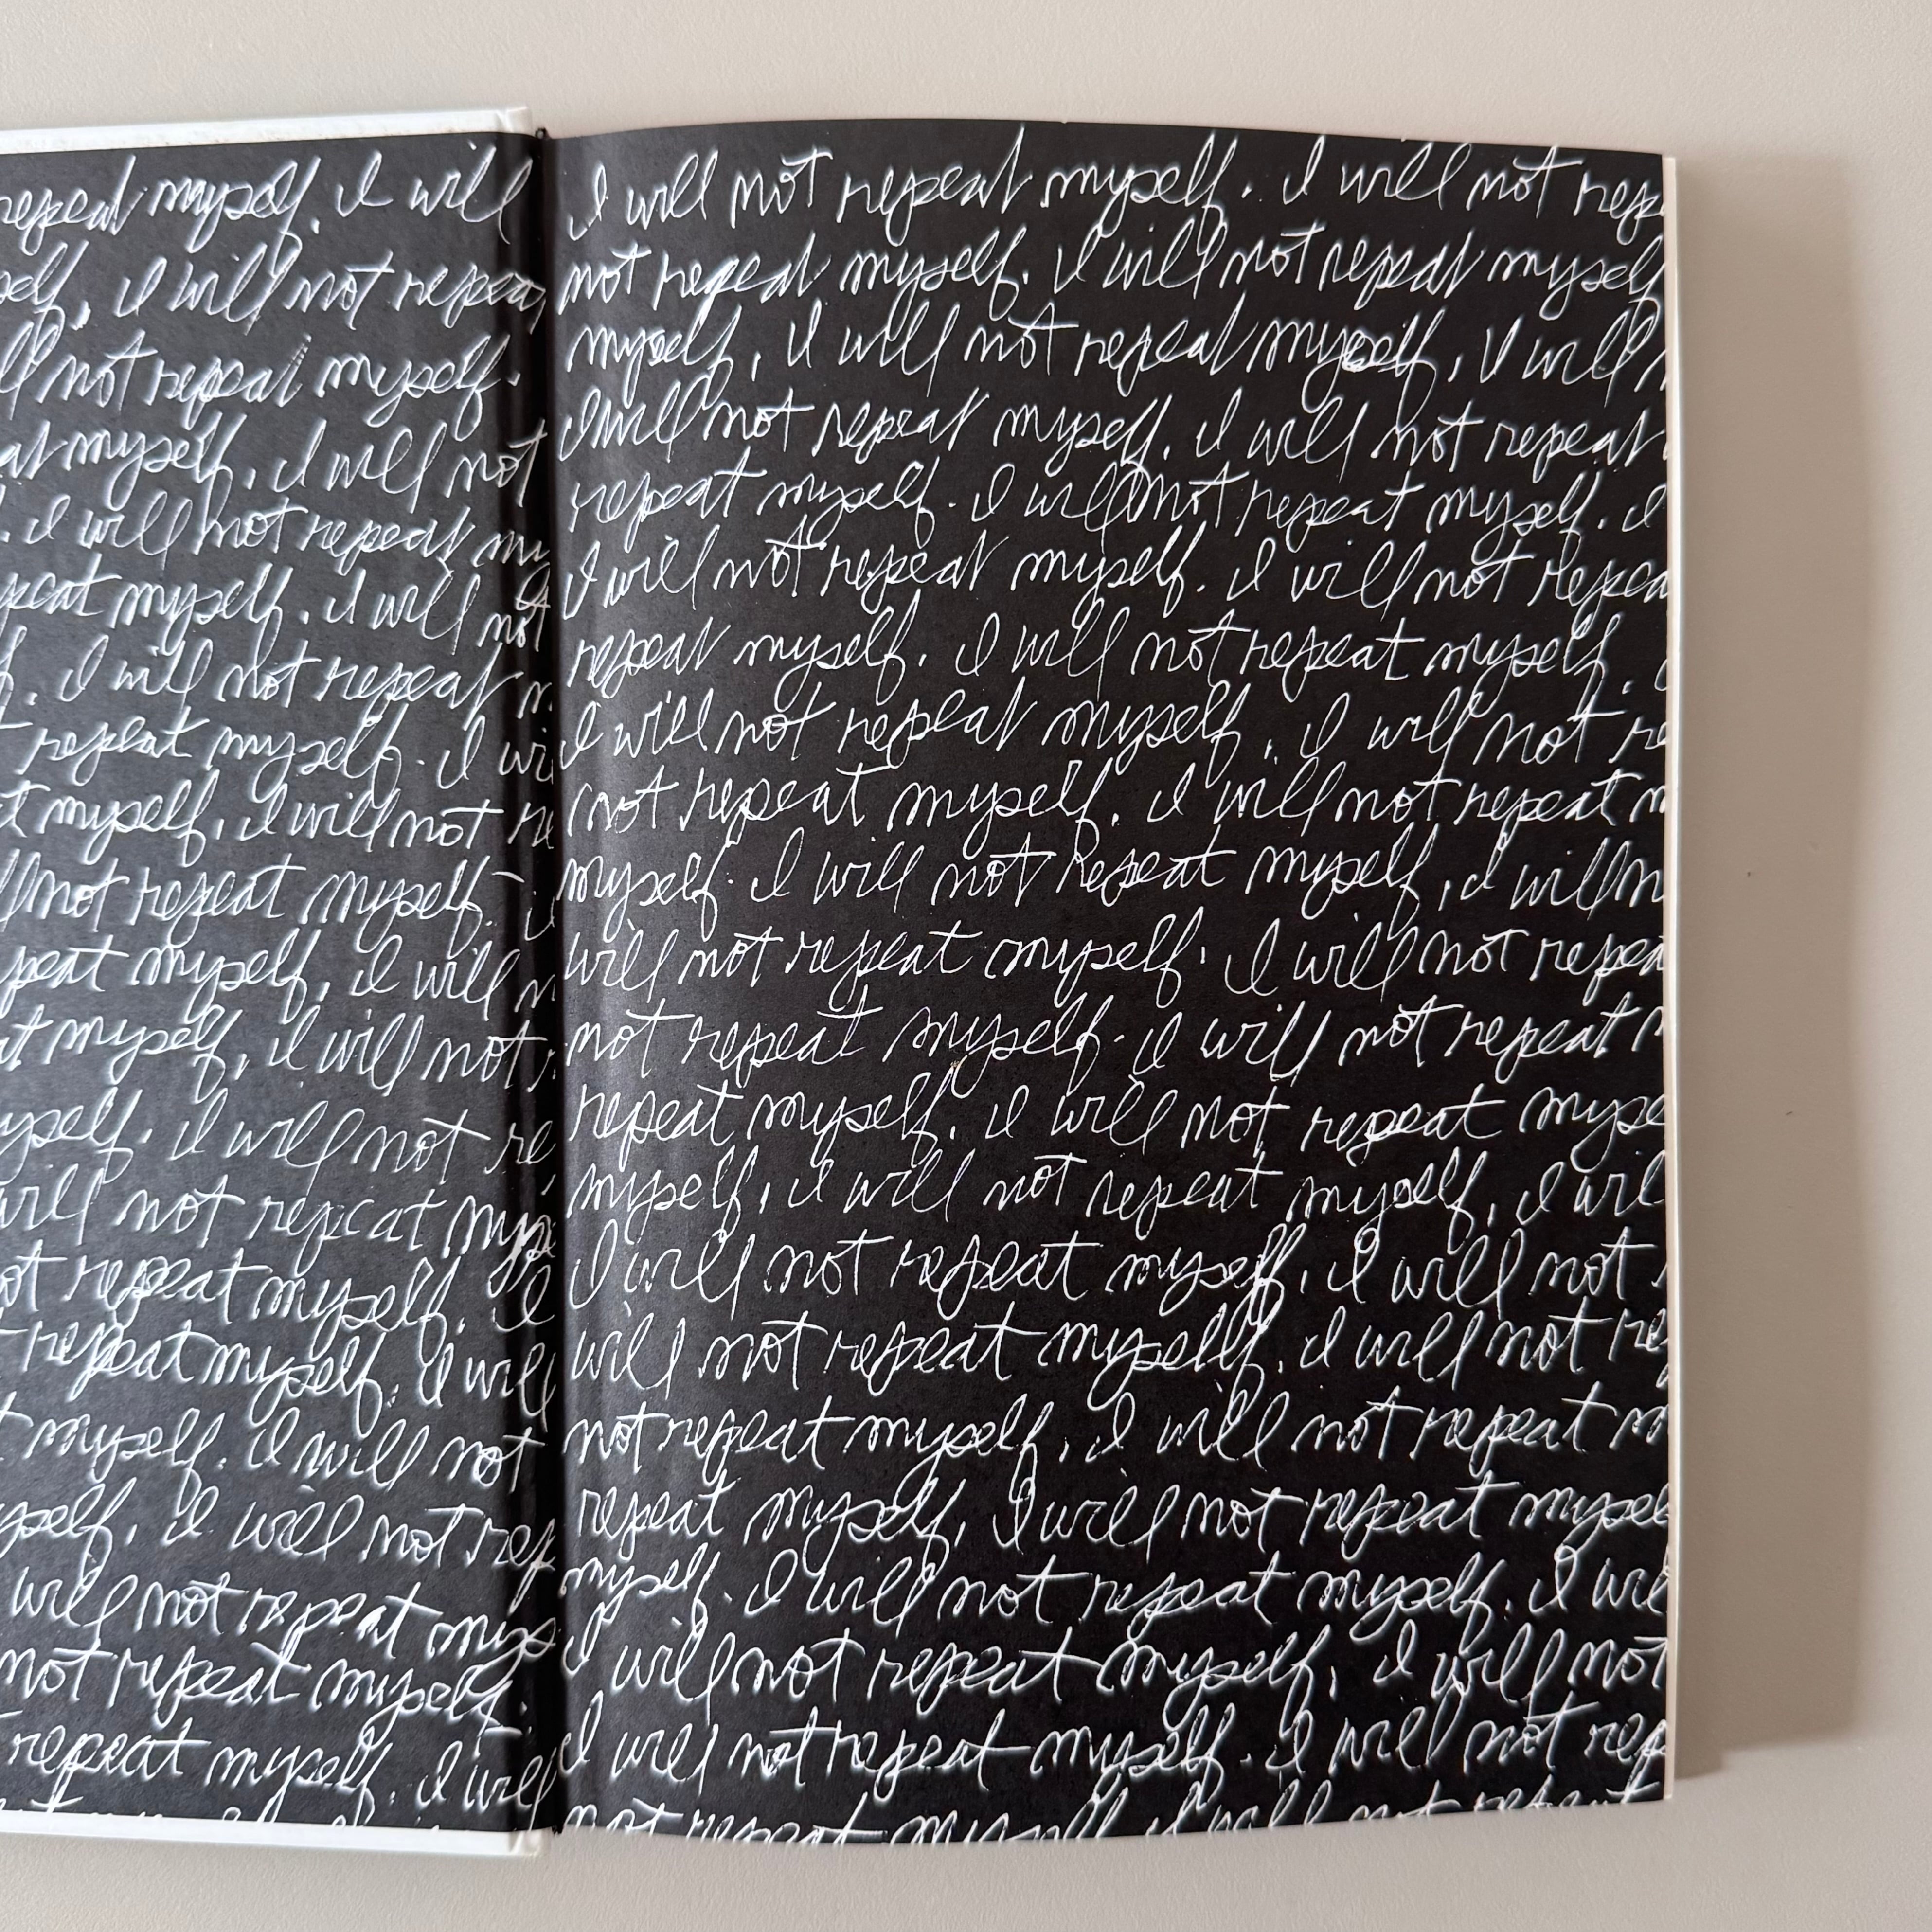 repeat myself. I will
I will not
not repeat myself.
myself. I will not
I will not repeat
myself. I will not
I will not repeat
repeat myself. I
myself. I will not
not repeat myself.
myself. I will
myself. I will not
I will not
will not repeat
repeat myself. I
repeat myself. I will
myself. I will not
I will not
will not repeat
not repeat myself.
repeat myself. I will
I will not repeat myself. I will not
not repeat myself. I will not repeat myself
myself. I will not repeat myself. I will
I will not repeat myself. I will not repeat
repeat myself. I will not repeat myself. I
I will not repeat myself. I will not
repeat myself. I will not repeat myself.
I will not repeat myself. I will not
not repeat myself. I will not repeat
myself. I will not repeat myself. I will
will not repeat myself. I will not
not repeat myself. I will not repeat
repeat myself. I will not repeat
myself. I will not repeat myself. I
I will not repeat myself. I will not
will not repeat myself. I will not
not repeat myself. I will not repeat
repeat myself. I will not repeat
myself. I will not repeat myself. I
I will not repeat myself. I will not
I will not repeat myself. I will not
not repeat myself. I will not repeat